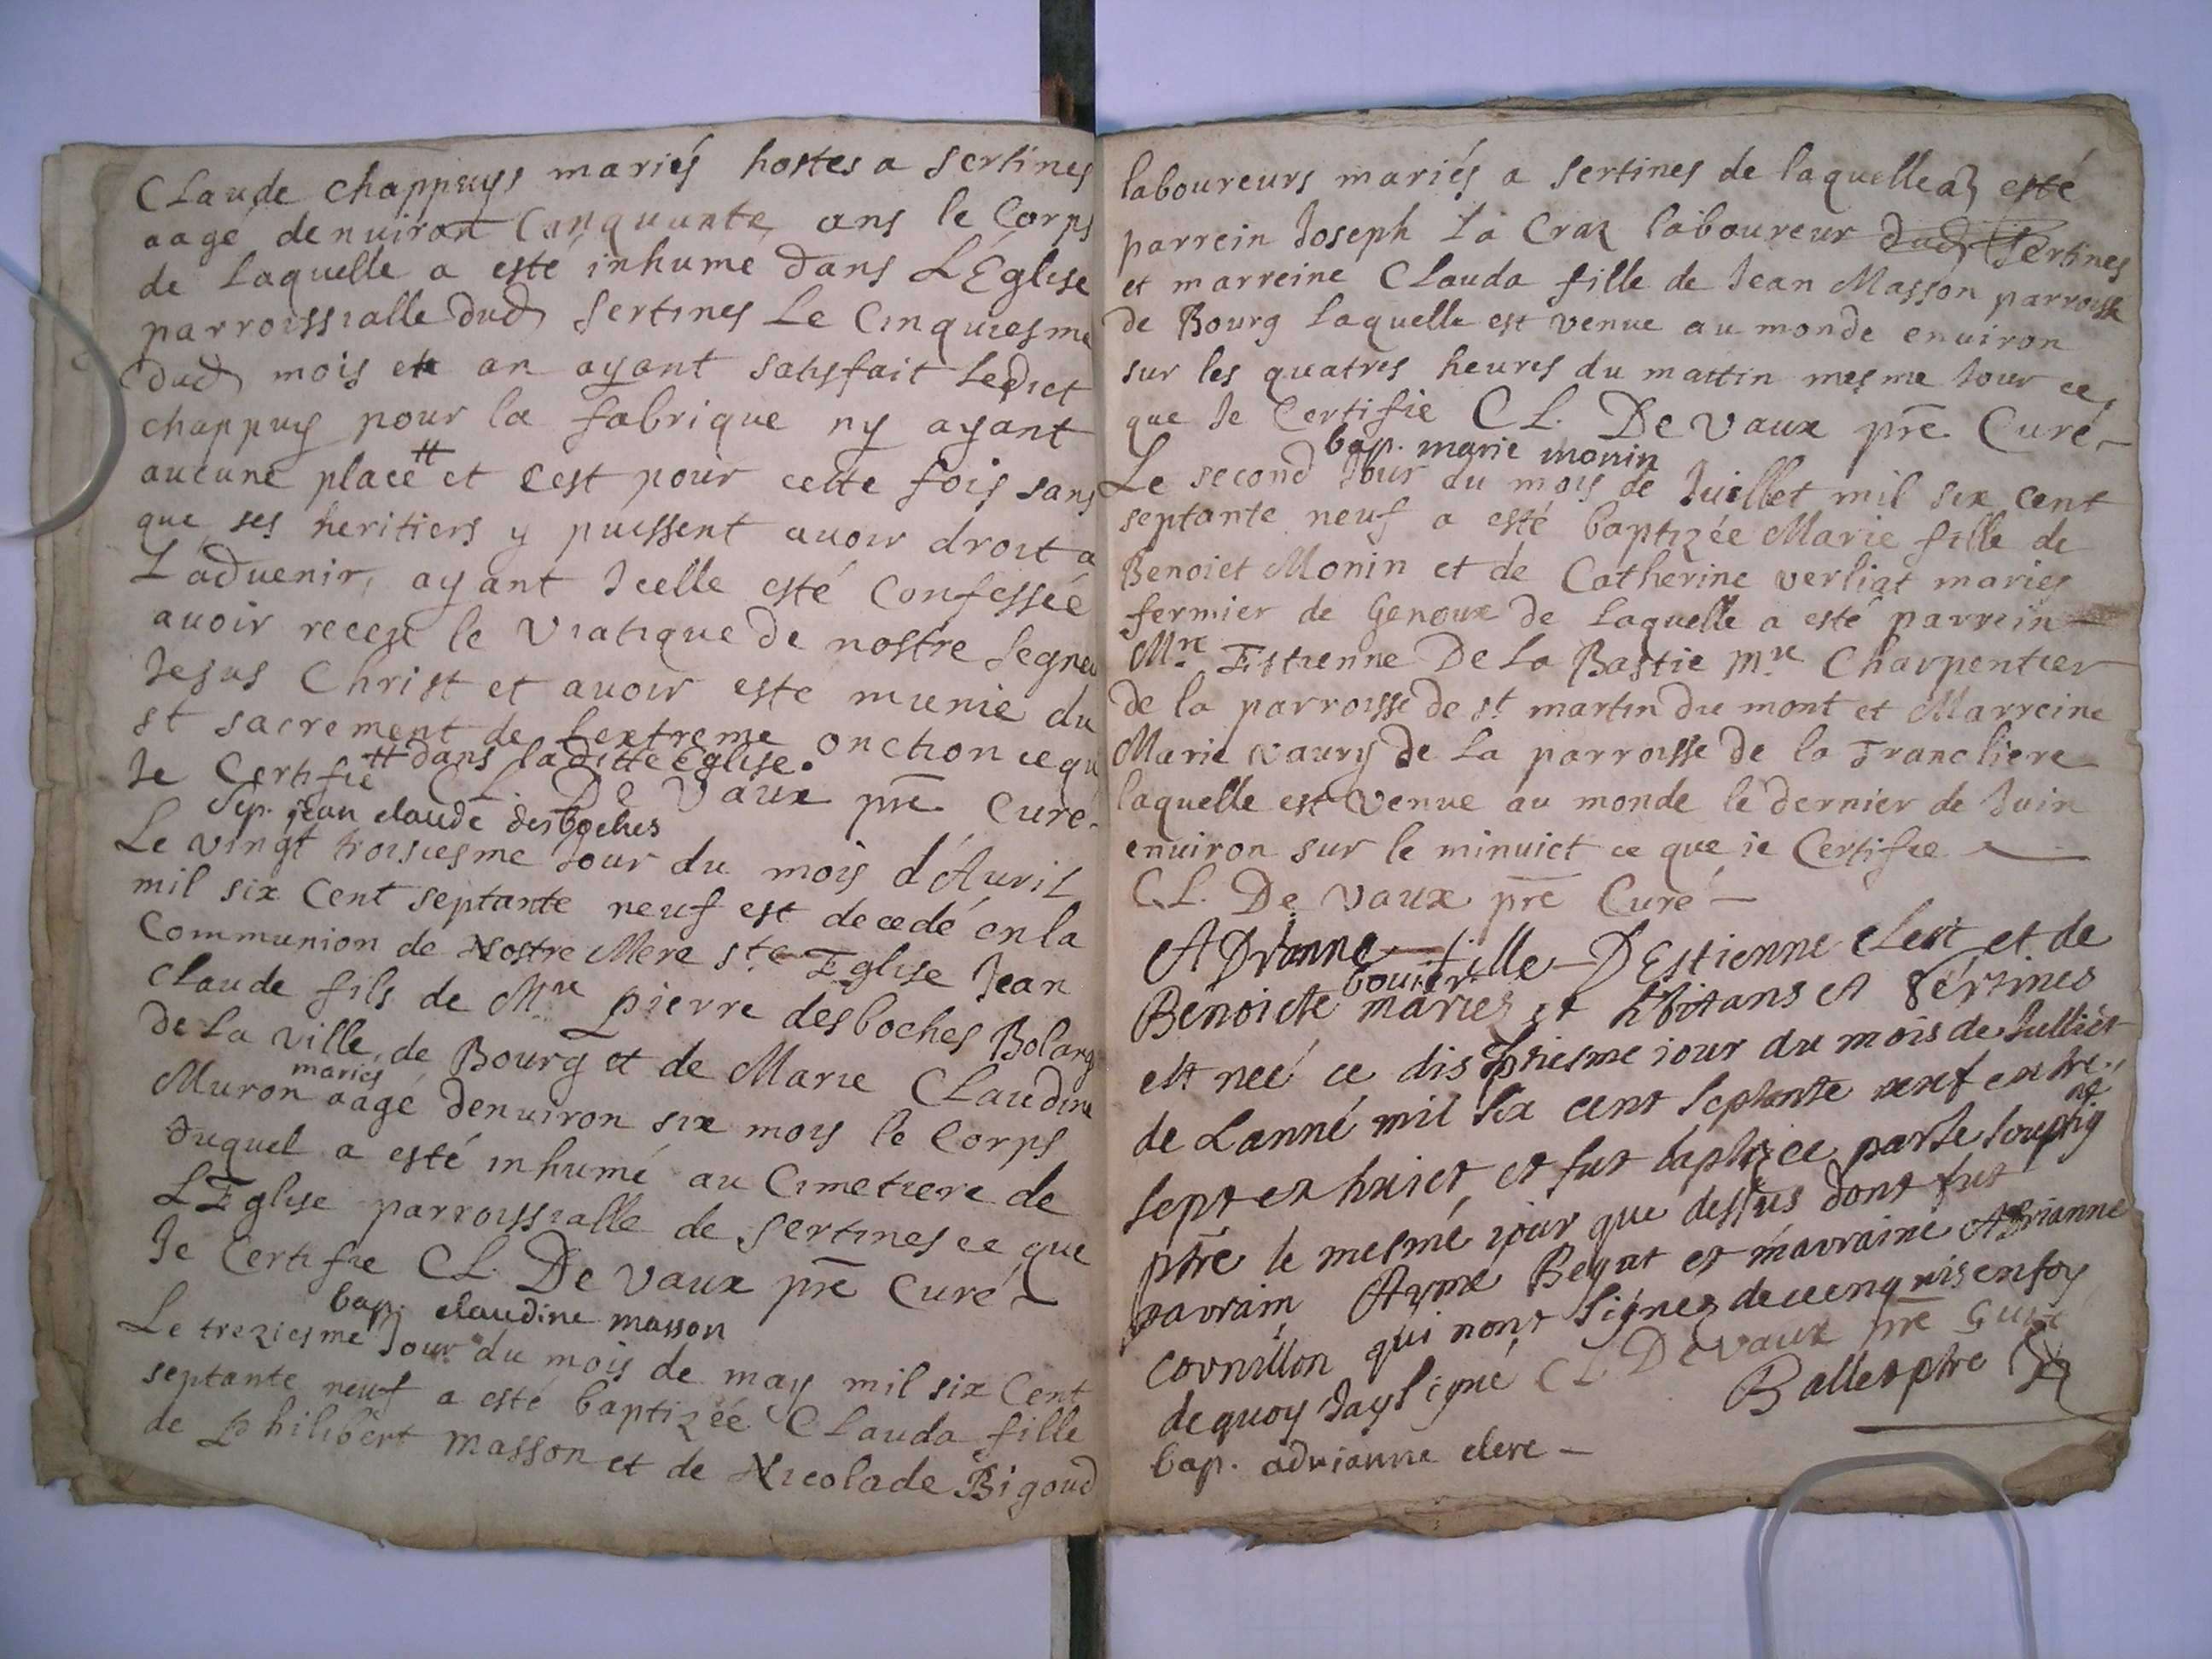 Claude Chappuys mariés hostes a Sertines
aagé denuiron Cinquante ans le Corps
de Laquelle a esté inhume dans L'Église
parroissialle dud Sertines Le Cinquiesme
dud mois et an ayant satisfait Ledict
chappuy pour la fabrique ny ayant
aucune place # et cest pour cette fois sans
que ses heritiers y puissent auoir droit a
Laduenir, ayant Icelle esté Confessée
auoir receu le Viatique de nostre Segneu
Jesus Christ et auoir este munie du
st sacrement de Lextreme onction ce qu
# dans laditte Eglise.
Je Certifie CL. De Vaux pre Curé
Sep. jean claude desboches
Le vingt troisiesme Jour du mois d'Auril
mil six Cent septante neuf est decedé en la
Communion de Nostre Mere ste Eglise Jean
Claude fils de Mre pierre desboches Bolang
De La ville de Bourg et de Marie Claudine
Muron mariés aagé denuiron six mois le Corps
duquel a esté inhumé au Cimetiere de
L'Eglise parroissialle de Sertines ce que
Je Certifie CL. De Vaux pre Curé
bap. claudine masson
Le treziesme Jour du mois de may mil six Cent
septante neuf a esté baptizée Clauda fille
de Philibert Masson et de Nicolade Bigoud
laboureurs mariés a Sertines de laquelle a esté
parrein Joseph La Craz laboureur dud Sertines
et marreine Clauda fille de Jean Masson parroisse
de Bourg Laquelle est venue au monde enuiron
sur les quatres heures du mattin mesme Jour ce
que Je Certifie CL. De Vaux pre Curé
bap. marie monin
Le second Jour du mois de Juillet mil six cent
septante neuf a esté baptizée Marie fille de
Benoict Monin et de Catherine verliat maries
fermier de Genoux de Laquelle a esté parrein
Mre Estienne De La Bastie Mre Charpentier
de la parroisse de st martin du mont et Marreine
Marie vaury de La parroisse de la Trancliere
laquelle est Venue au monde le dernier de Juin
enuiron sur le minuict ce que ie Certifie
CL. De Vaux pre Curé
ADrianne fille DEstienne Clert et de
Benoicte bouier maries et hbitans A Sértines
est neé ce disptiesme iour du mois de Julliet
de Lanné mil six cent septante neuf entre
sept et huict et fut baptizee par le soupsigné
ptre le mesmé iour que dessus dont fut
parrain Aymé Beyat et marrainé Adrianne
Cornillon qui nont signez de ce enquis en foy
de quoy Jay signé CL DeVaux pre Curé
Ballet ptre
bap. adrianne clere